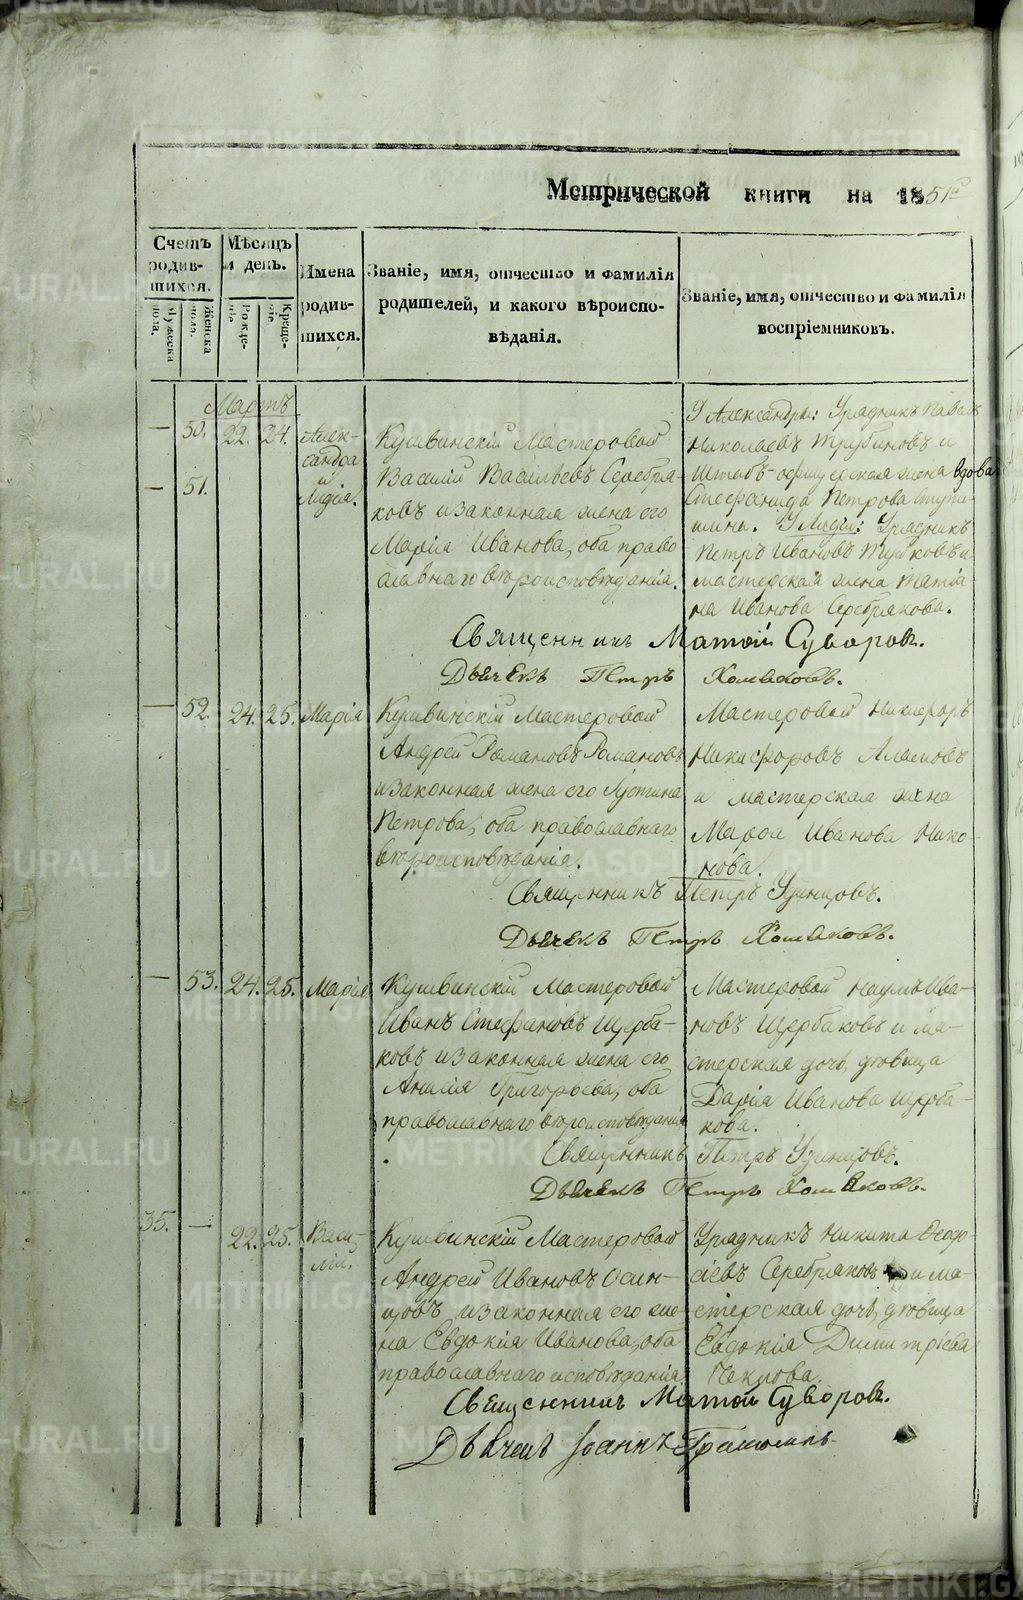 Метрической книги на 1851й
Счетъ родив-шихся.
Мужеска пола.
Женска пола.
Мѣсяцъ и день.
Рожде-нія.
Креще-нія.
Имена родив-шихся.
Званіе, имя, отчество и фамилія
родителей, и какого вѣроиспо-
вѣданія.
Званіе, имя, отчество и фамилія
воспріемниковъ.
Мартъ
— 50. 22. 24.
Алек-
сандра
и
Лидія.
— 51.
Кушвинскій Мастеровой
Василій Васильевъ Серебря-
ковъ и законная жена его
Марія Иванова, оба право
славнаго вѣроисповѣданія.
У Александры: Урядникъ Павелъ
Николаевъ Трубиновъ и
Штабъ-офицерская жена вдова
Стефанида Петрова
У Лидіи: Урядникъ
Петръ Ивановъ и
мастерская жена Татіа
на Иванова Серебрякова.
Священникъ Матѳій Суворовъ.
Дьячекъ Петръ Хомяковъ.
— 52. 24. 25. Марія
Кушвинскій Мастеровой
Андрей Романовъ Романовъ
и законная жена его Іустина
Петрова, оба православнаго
вѣроисповѣданія.
Мастеровой Никифоръ
Никифоровъ
и мастерская жена
Марѳа Иванова Нико-
нова.
Священникъ Петръ Удинцовъ.
Дьячекъ Петръ Хомяковъ.
— 53. 24. 25. Марія
Кушвинскій Мастеровой
Иванъ Стефановъ Щерба-
ковъ и законная жена его
Анисія Григорьева, оба
православнаго вѣроисповѣданія
Мастеровой Наумъ Ива-
новъ Щербаковъ и ма-
стерская дочь, дѣвица
Дарія Иванова Щерба-
кова.
Священникъ Петръ Удинцовъ.
Дьячекъ Петръ Хомяковъ.
35. — 22. 25.
Васи-
лій.
Кушвинскій Мастеровой
Андрей Ивановъ Осин-
цовъ и законная его же-
на Евдокія Иванова, оба
православнаго исповѣданія
Урядникъ Никита Ѳеодо-
сіевъ Серебряковъ и ма-
стерская дочь, дѣвица
Евдокія Димитріева
Священникъ Матѳій Суворовъ.
Дьячекъ Іоаннъ
METRIKI.GASO-URAL.RU